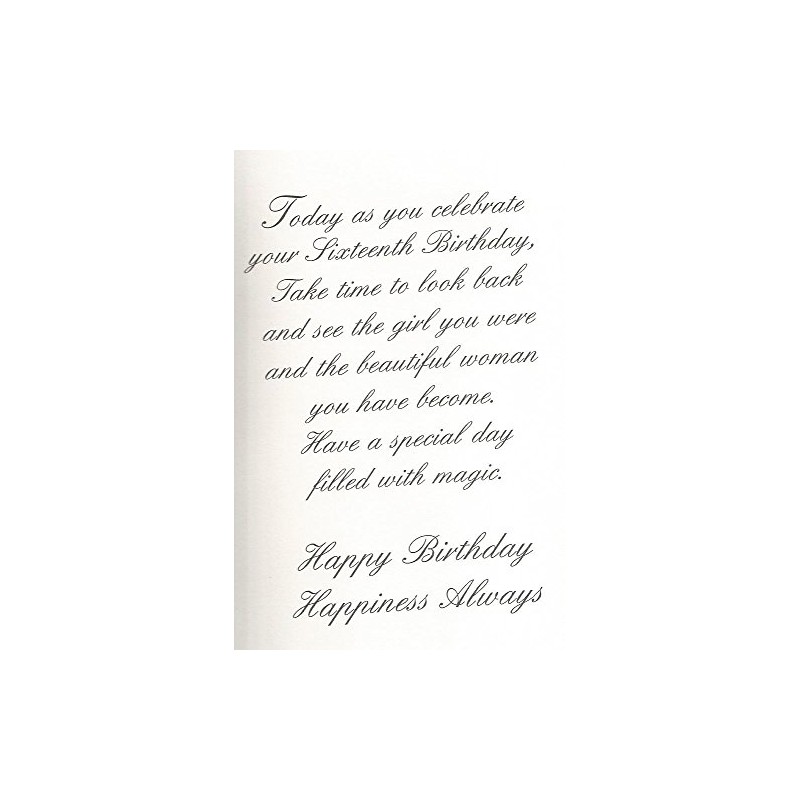 Today as you celebrate
your Sixteenth Birthday,
Take time to look back
and see the girl you were
and the beautiful woman
you have become.
Have a special day
filled with magic.
Happy Birthday
Happiness Always